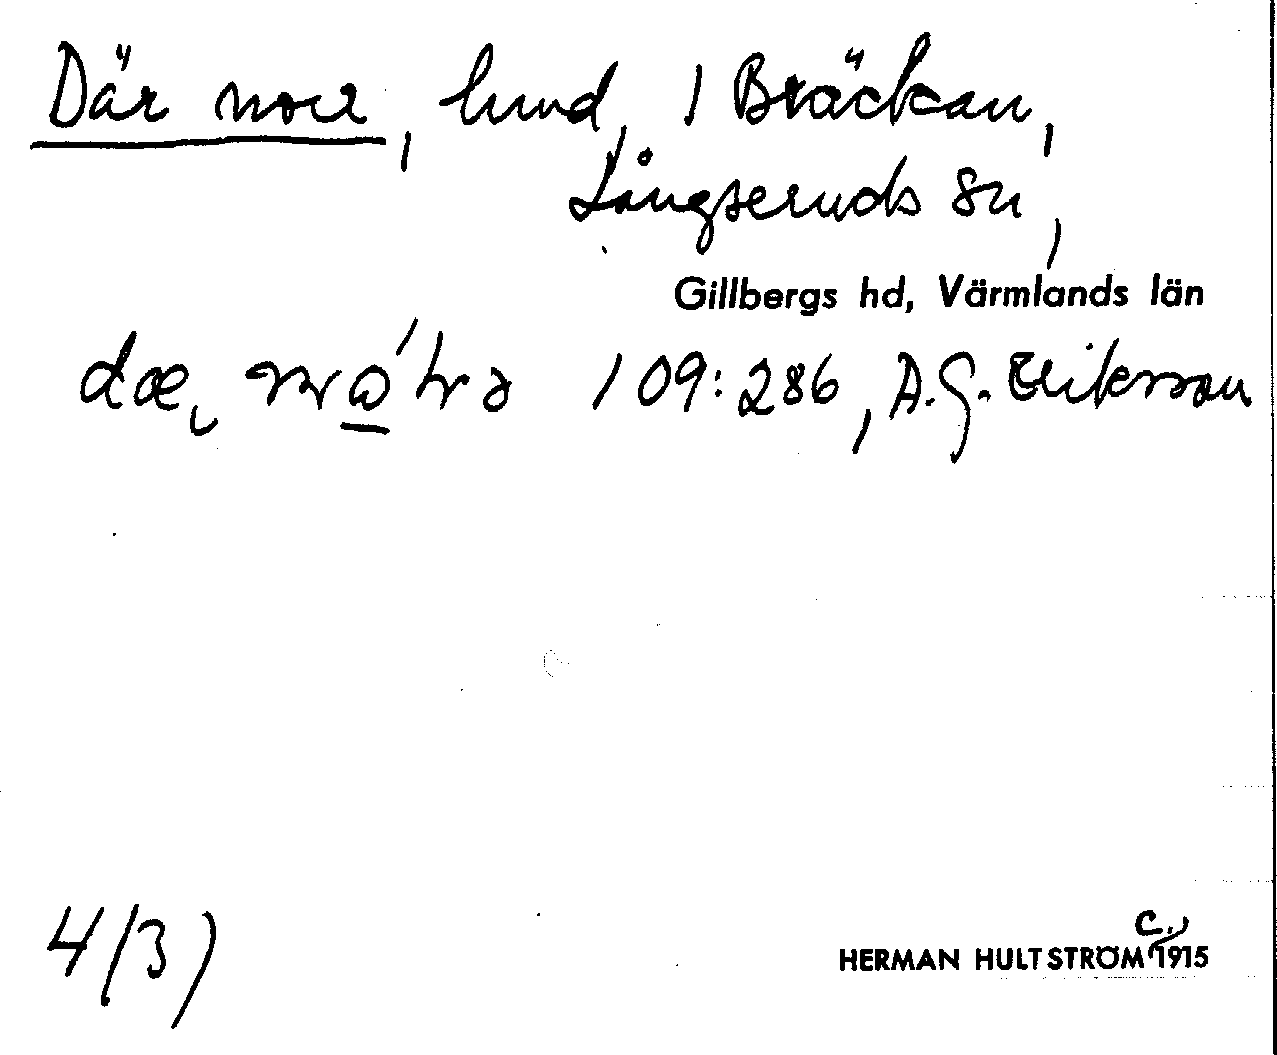 Där nore, lund, / Bräckan,
Långseruds sn,
Gillbergs hd, Värmlands län
/ 09:286, A. G. Eriksson
4/3)
HERMAN HULTSTRÖM c. 1915